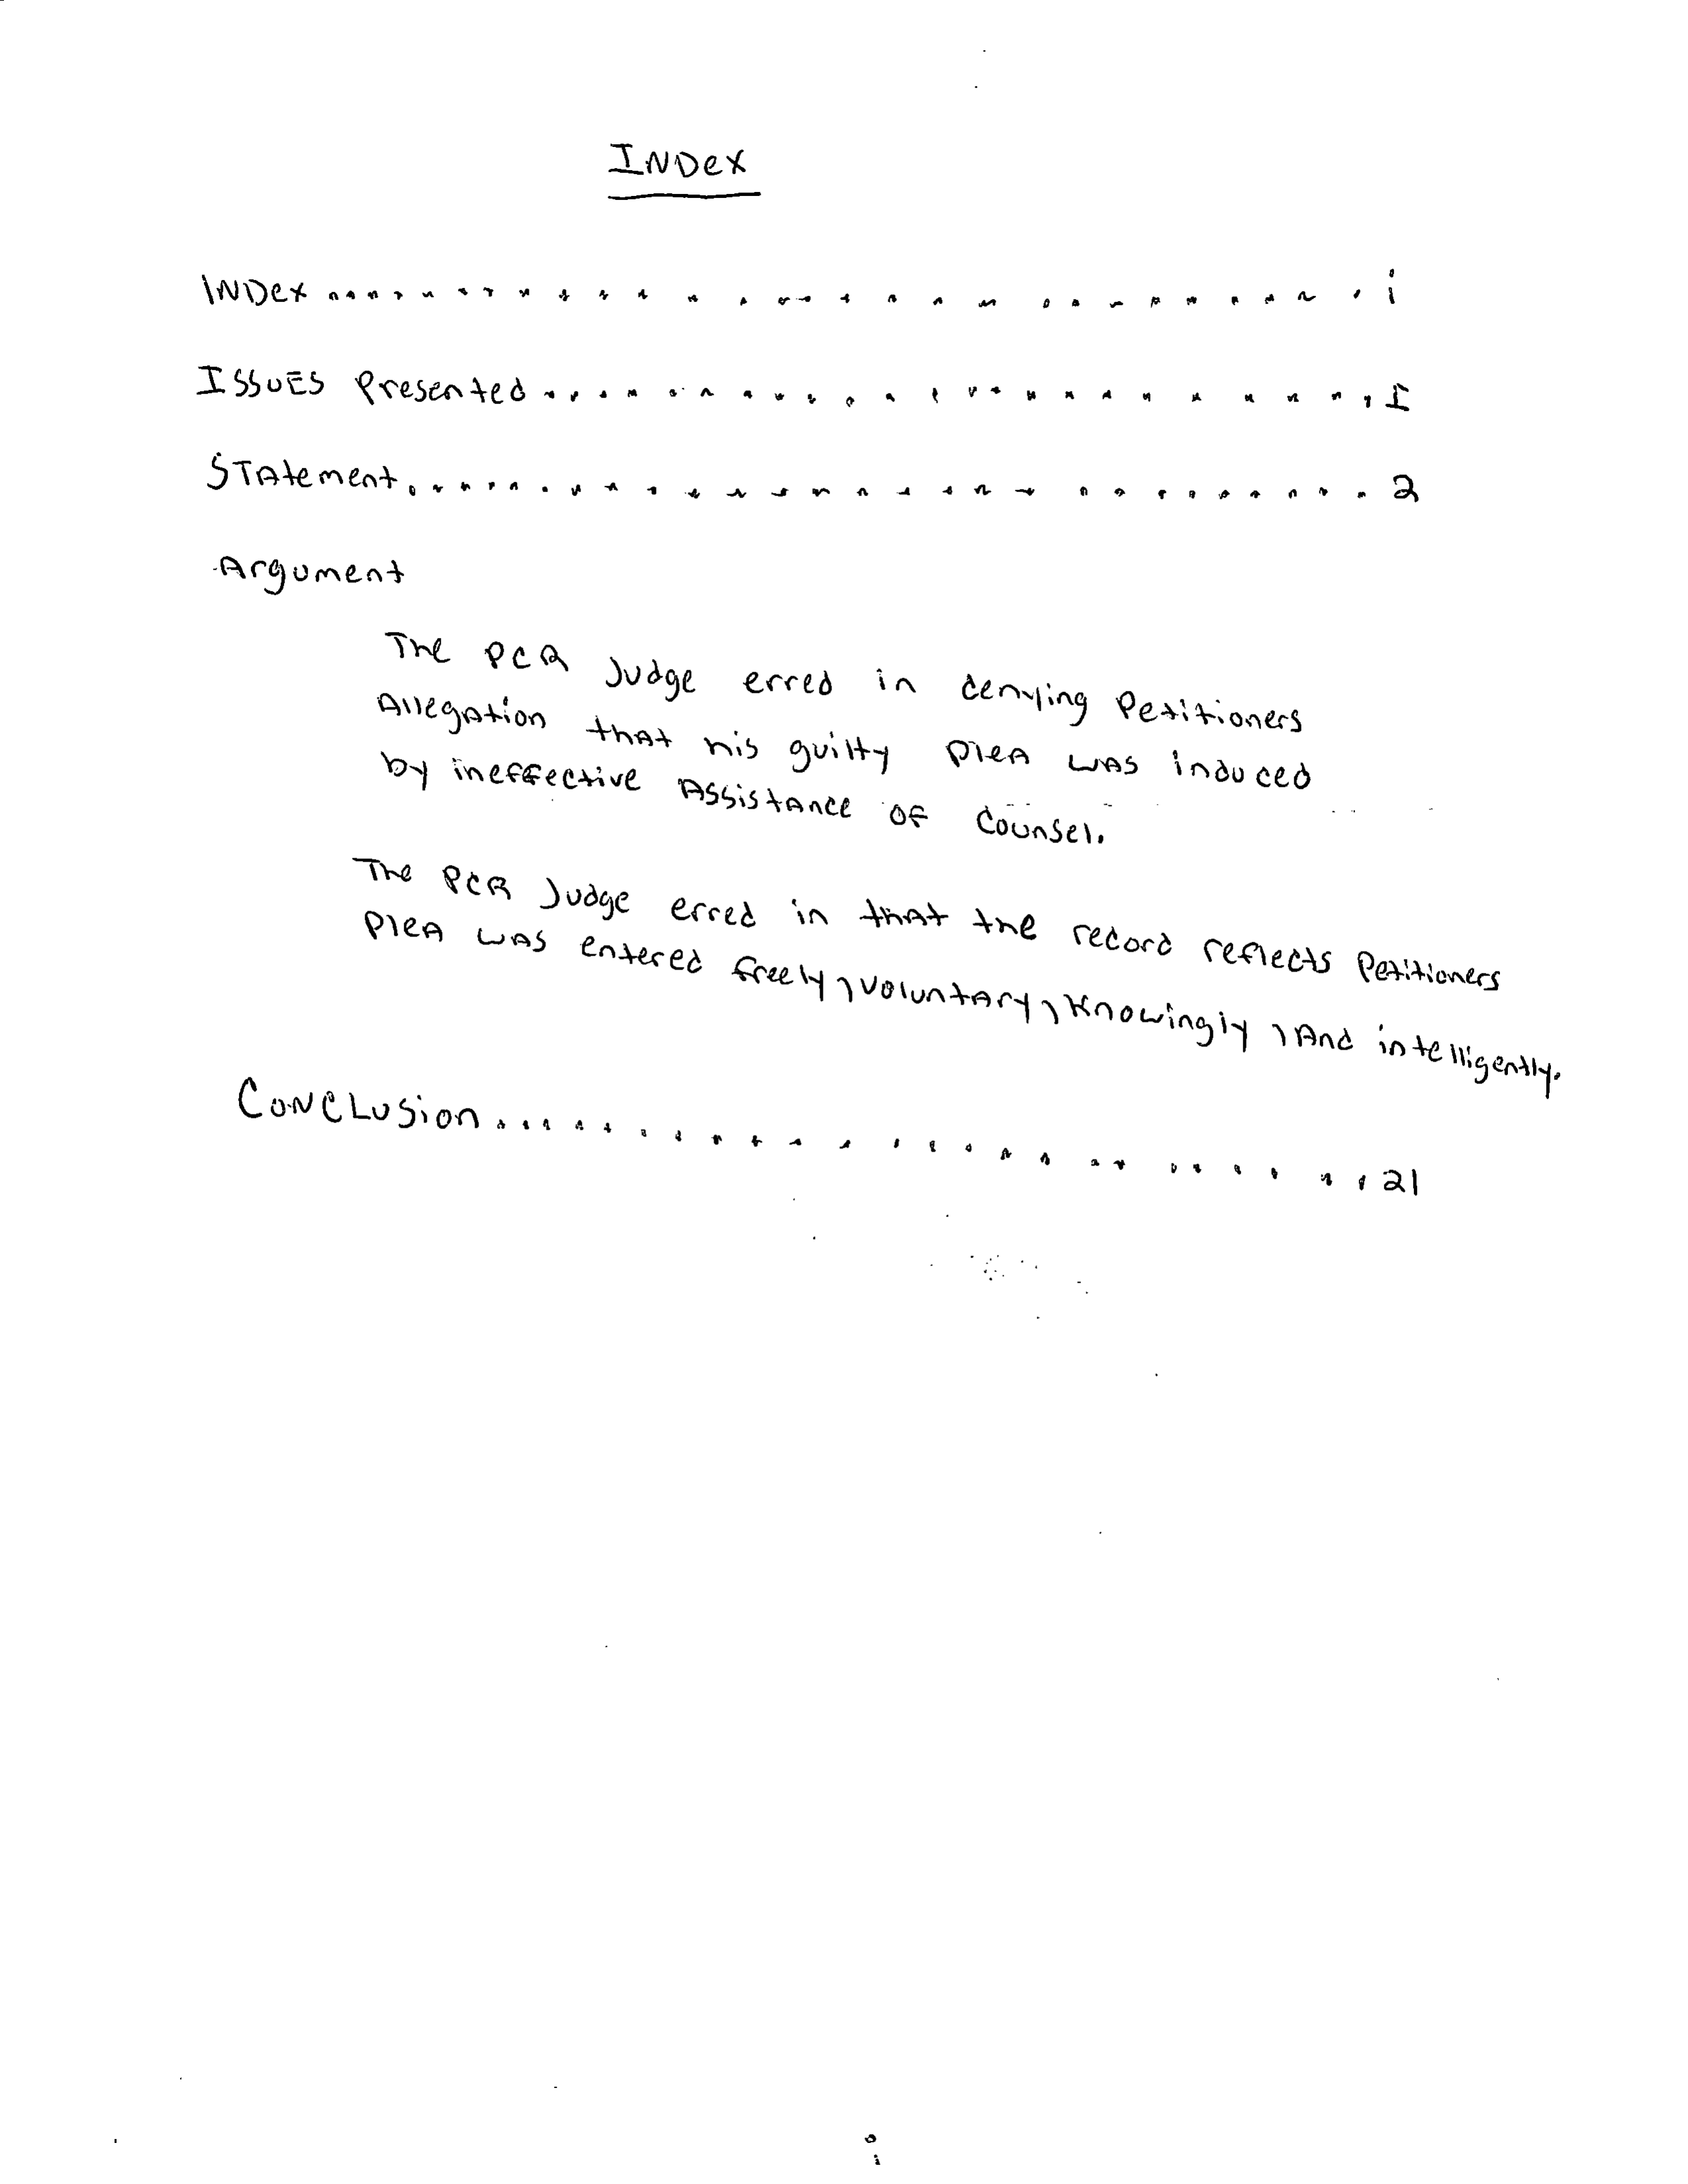 INDex
INDex ........................................ i
ISSUES Presented .................................. I
STAtement .................................... 2
Argument
The PCR Judge erred in denying Petitioners
Allegation that his guilty PleA wAs induced
by ineffective Assistance of Counsel.
The PCR Judge erred in thAt the record reflects Petitioners
PleA wAs entered freely, voluntary, Knowingly, And intelligently.
CoNCLusion ................................ 21
i